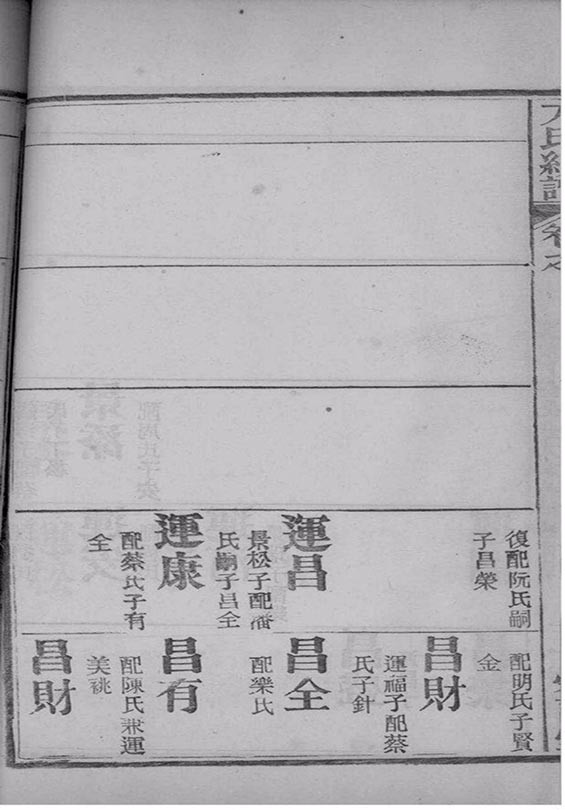 氏
卷之
復配阮氏嗣
子昌榮
運昌
景松子配潘
氏嗣子昌全
運康
配蔡氏子有
全
配明氏子賢
金
昌財
運福子配蔡
氏子針
昌全
配樂氏
昌有
配陳氏兼運
美祧
昌財